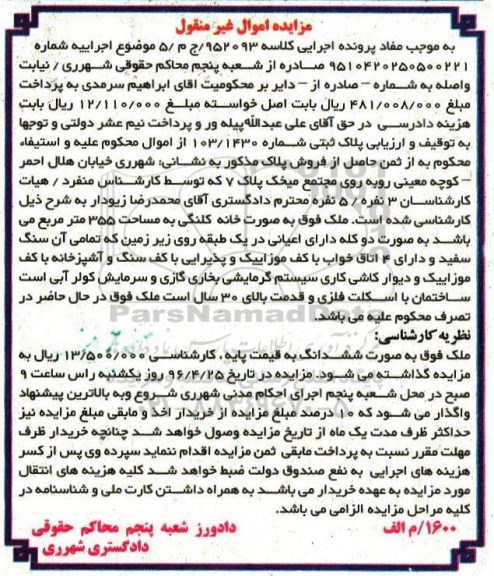 مزایده اموال غیر منقول
به موجب مفاد پرونده اجرایی کلاسه ۹۵۲۰۹۳/ج م /۵ موضوع اجراییه شماره
۹۵۱۰۴۲۰۲۵۰۵۰۰۲۲۱ صادره از شعبه پنجم محاکم حقوقی شهرری / نیابت
واصله به شماره – صادره از – دایر بر محکومیت اقای ابراهیم سرمدی به پرداخت
مبلغ ۴۸۱/۰۰۸/۰۰۰ ریال بابت اصل خواسته مبلغ ۱۲/۱۱۰/۰۰۰ ریال بابت
هزینه دادرسی در حق آقای علی عبدالله پیله ور و پرداخت نیم عشر دولتی و توجها
به توقیف و ارزیابی پلاک ثبتی شماره ۱۰۳/۱۴۳۰ از اموال محکوم علیه و استیفاء
محکوم به از ثمن حاصل از فروش پلاک مذکور به نشانی: شهرری خیابان هلال احمر
– کوچه معینی روبه روی مجتمع میخک پلاک ۷ که توسط کارشناس منفرد / هیات
کارشناسان ۳ نفره /۵ نفره محترم دادگستری آقای محمدرضا زیودار به شرح ذیل
کارشناسی شده است. ملک فوق به صورت خانه کلنگی به مساحت ۳۵۵ متر مربع می
باشد به صورت دو کله دارای اعیانی در یک طبقه روی زیر زمین که تمامی آن سنگ
سفید و دارای ۴ اتاق خواب با کف موزاییک و پذیرایی با کف سنگ و آشپزخانه با کف
موزاییک و دیوار کاشی کاری سیستم گرمایشی بخاری گازی و سرمایش کولر آبی است
ساختمان با اسکلت فلزی و قدمت بالای ۳۰ سال است ملک فوق در حال حاضر در
تصرف محکوم علیه می باشد.
ParsNamadData
نظریه کارشناسی:
ملک فوق به صورت ششدانگ به قیمت پایه ، کارشناسی ۱۳/۵۰۰/۰۰۰ ریال به
مزایده گذاشته می شود. مزایده در تاریخ ۹۶/۴/۲۵ روز یکشنبه راس ساعت ۹
صبح در محل شعبه پنجم اجرای احکام مدنی شهرری شروع وبه بالاترین پیشنهاد
واگذار می شود که ۱۰ درصد مبلغ مزایده از خریدار اخذ و مابقی مبلغ مزایده نیز
حداکثر ظرف مدت یک ماه از تاریخ مزایده وصول خواهد شد چنانچه خریدار ظرف
مهلت مقرر نسبت به پرداخت مابقی ثمن مزایده اقدام ننماید سپرده وی پس از کسر
هزینه های اجرایی به نفع صندوق دولت ضبط خواهد شد کلیه هزینه های انتقال
مورد مزایده به عهده خریدار می باشد به همراه داشتن کارت ملی و شناسنامه در
کلیه مراحل مزایده الزامی می باشد.
۱۶۰۰/م الف
دادورز شعبه پنجم محاکم حقوقی
دادگستری شهرری